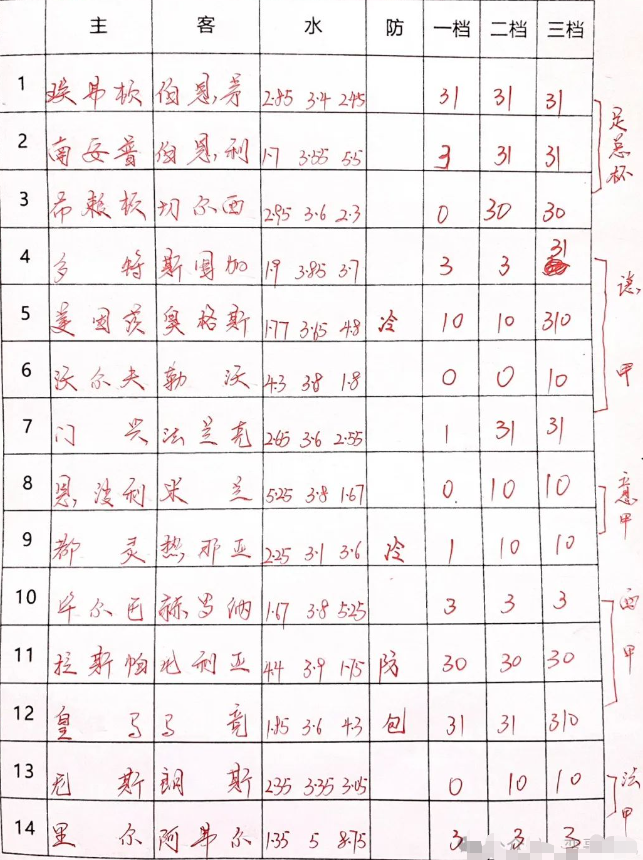 主 客 水 防 一档 二档 三档
1 埃弗顿 伯恩茅 2.85 3.4 2.45 31 31 31
足总杯
2 南安普 伯恩利 1.7 3.55 5.5 3 31 31
3 布赖顿 切尔西 2.95 3.6 2.3 0 30 30
4 多特 斯图加 1.9 3.85 3.7 3 3 31
德甲
5 美因茨 奥格斯 1.77 3.65 4.8 冷 10 10 310
6 沃尔夫 勒沃 4.3 3.8 1.8 0 0 10
7 门兴 法兰克 2.65 3.6 2.55 1 31 31
8 恩波利 米兰 5.25 3.8 1.67 0 10 10
意甲
9 都灵 热那亚 2.25 3.1 3.6 冷 1 10 10
10 毕尔巴 赫罗纳 1.67 3.8 5.25 3 3 3
西甲
11 拉斯帕 比利亚 4.4 3.9 1.75 防 30 30 30
12 皇马 马竞 1.85 3.6 4.3 包 31 31 310
13 尼斯 朗斯 2.35 3.35 3.05 0 10 10
法甲
14 里尔 阿弗尔 1.35 5 8.75 3 3 3